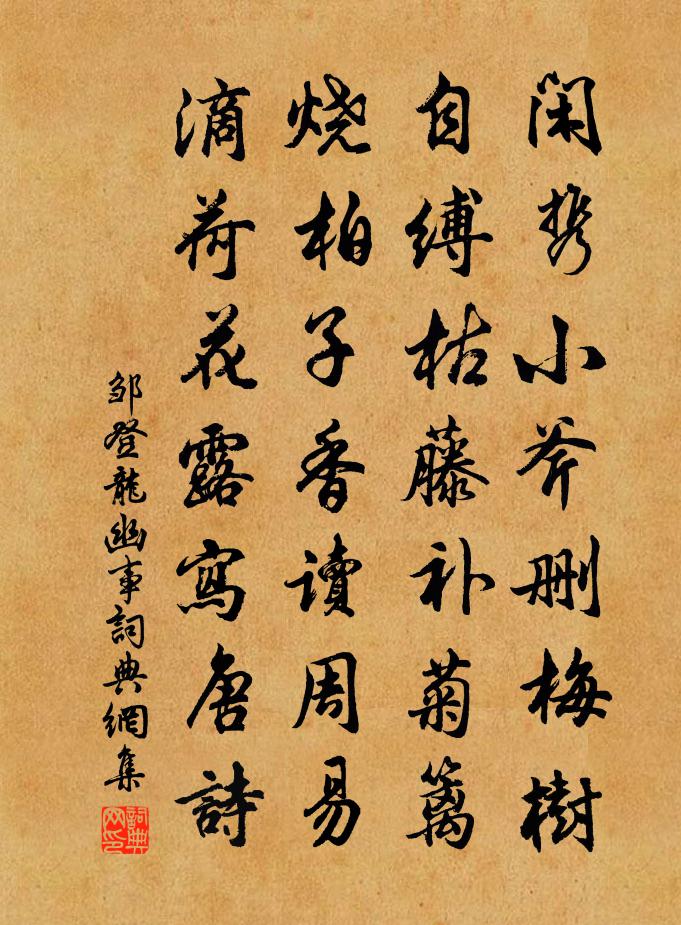 闲携小斧删梅树
自缚枯藤补菊篱
烧柏子香读周易
滴荷花露寫唐詩
邹登龍幽事詞典網集
詞典网印